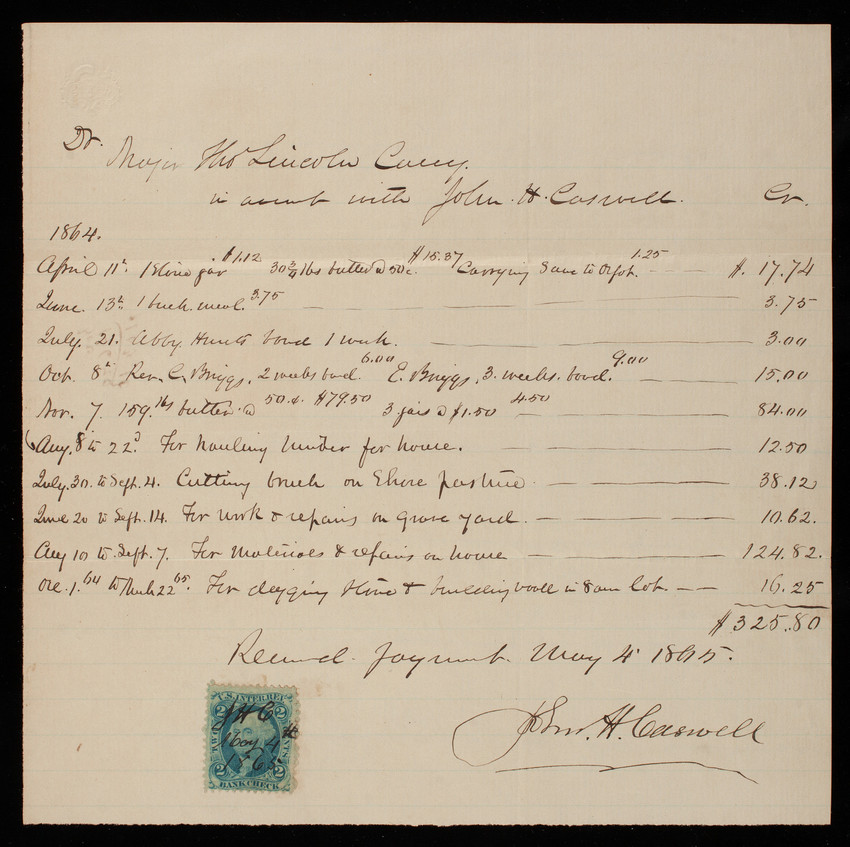 Dr. Major Tho Lincoln Casey.
in account with John H. Caswell. Cr.
1864.
April 11th 1 Stone jar $1.12 30 3/4 lbs butter @ 50c. $15.37 Carrying same to 1.25 $. 17.74
June. 13th 1 bush. meal. 3.75 3.75
July. 21. Abby Hunts board 1 week. 3.00
Oct. 8th Rev. C. Briggs. 2 weeks board. 6.00 E. Briggs. 3. weeks. board. 9.00 15.00
Nov. 7. 159. lbs butter. @ 50.c. $79.50 3 jars @ $1.50 4.50 84.00
Aug. 8th to 22d. For hauling timber for house. 12.50
July. 30. to Sept. 4. Cutting brush on Shore pasture 38.12
June 20 to Sept. 14. For work & repairs on Grave yard. 10.62.
Aug 10 to. Sept. 7. For Materials & repairs on house 124.82.
1. 64 to March 22 65. For digging stone & building wall in lot. 16.25
$325.80
Received. payment. May 4 1865.
John. H. Caswell
U.S. INTER. REV.
2 2
JHC
May 4th
1865
2 2
BANK CHECK